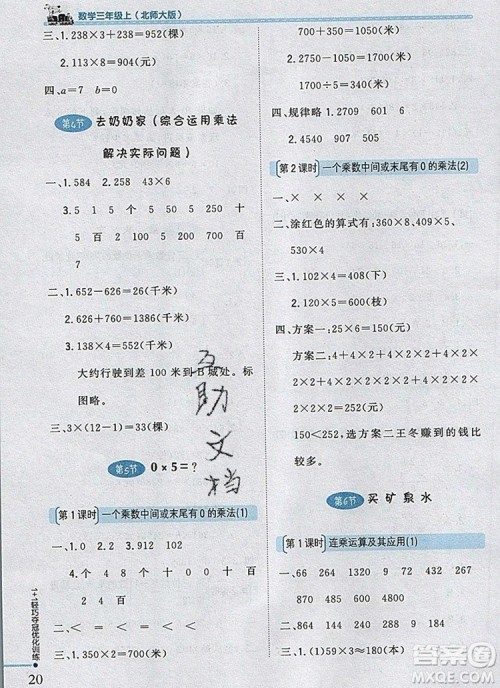 数学三年级上(北师大版)
三、1.238×3+238=952(棵)
2.113×8=904(元)
四、a=7 b=0
第4节 去奶奶家(综合运用乘法
解决实际问题)
一、1.584 2.258 43×6
3.5 1 5 5 5 250 十
5 百 2 100 5 500 百
8 7
二、1.652-626=26(千米)
2.626+760=1386(千米)
3.138×4=552(千米)
大约行驶到差 100 米到 B 城处。标
图略。
三、3×(12-1)=33(棵)
第5节 0×5=?
第1课时 一个乘数中间或末尾有0的乘法(1)
一、1.0 2.3 912 912
2.4 个 4 8 十 4 0 百
4 个 24 十 24 0 百 24
百 240
二、< < = < = <
三、1.350×2=700(米)
700+350=1050(米)
2.1700÷10=170(元)
1700÷5=340(元)
四、规律略 1.2709 601 106
2.4540 4090 910 90
第2课时 一个乘数中间或末尾有0的乘法(2)
一、× × × ×
二、涂红色的算式有:360×8,409×5,
530×4
三、1.102×4=408(下)
2.100×6=600(枝)
四、方案一:25×6=150(元)
方案二:1+2×2×2×2+2×2
×2×2×2+2×2×2×2×2×2
150<252,选方案二王冬赚到的钱比
较多。
第6节 买矿泉水
第1课时 连乘运算及其应用(1)
一、66 264 1290 432 267
801 328 984 82 492
294 882
二、< > = < > <
三、1.(1)59×3=177(人)
互助文档
1+1轻巧夺冠优化训练
20
答案圈
MXQE.COM